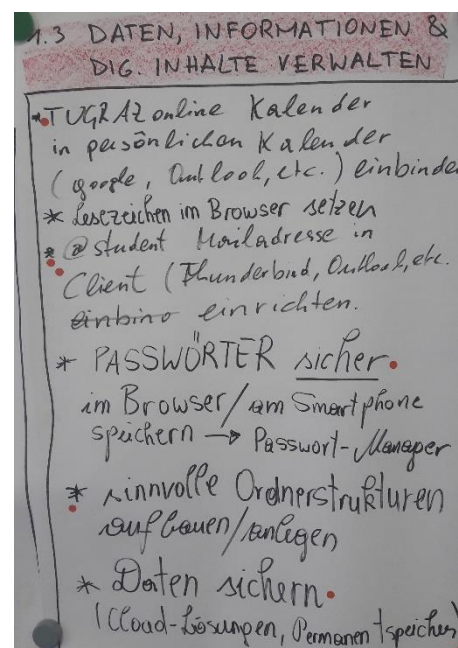 1.3 DATEN, INFORMATIONEN &
DIG. INHALTE VERWALTEN
* TUGRAZ online Kalender
in persönlichen Kalender
(google, Outlook, etc.) einbinde
* Lesezeichen im Browser setzen
* @student Mailadresse in
Client (Thunderbird, Outlook, etc.
einbind einrichten.
* PASSWÖRTER sicher
im Browser/am Smartphone
speichern → Passwort-Manager
* sinnvolle Ordnerstrukturen
aufbauen/anlegen
* Daten sichern
(Cloud-Lösungen, Permanentspeicher)